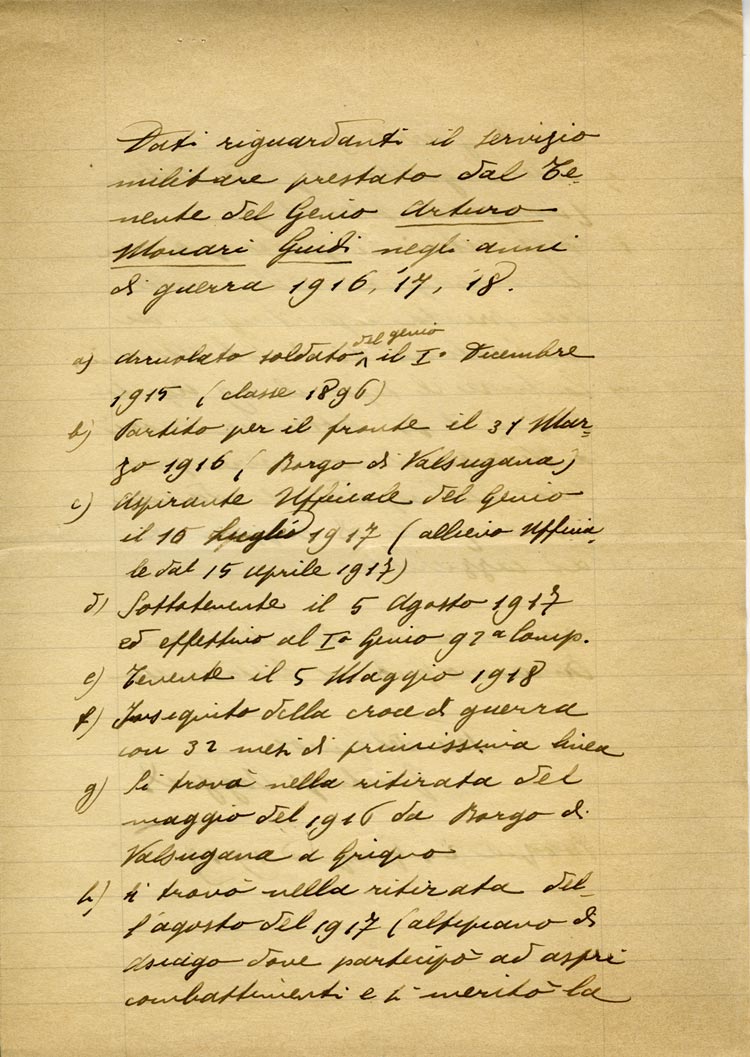 Dati riguardanti il servizio
militare prestato dal Te-
nente del Genio Arturo
Monari Guidi negli anni
di guerra 1916, '17, '18.
a) Arruolato soldato del genio il I° Decembre
1915 (classe 1896)
b) Partito per il fronte il 31 Mar-
zo 1916 (Borgo di Valsugana)
c) Aspirante Ufficiale del Genio
il 15 Luglio 1917 (allievo Ufficia-
le dal 15 Aprile 1917)
d) Sottotenente il 5 Agosto 1917
ed effettivo al I° Genio 92a Comp.
e) Tenente il 5 Maggio 1918
f) Insignito della croce di guerra
con 32 mesi di primissima linea
g) Si trovò nella ritirata del
maggio del 1916 da Borgo di
Valsugana a Grigno
h) Si trovò nella ritirata del-
l'agosto del 1917 (altipiano di
Asiago dove partecipò ad aspri
combattimenti e si meritò la